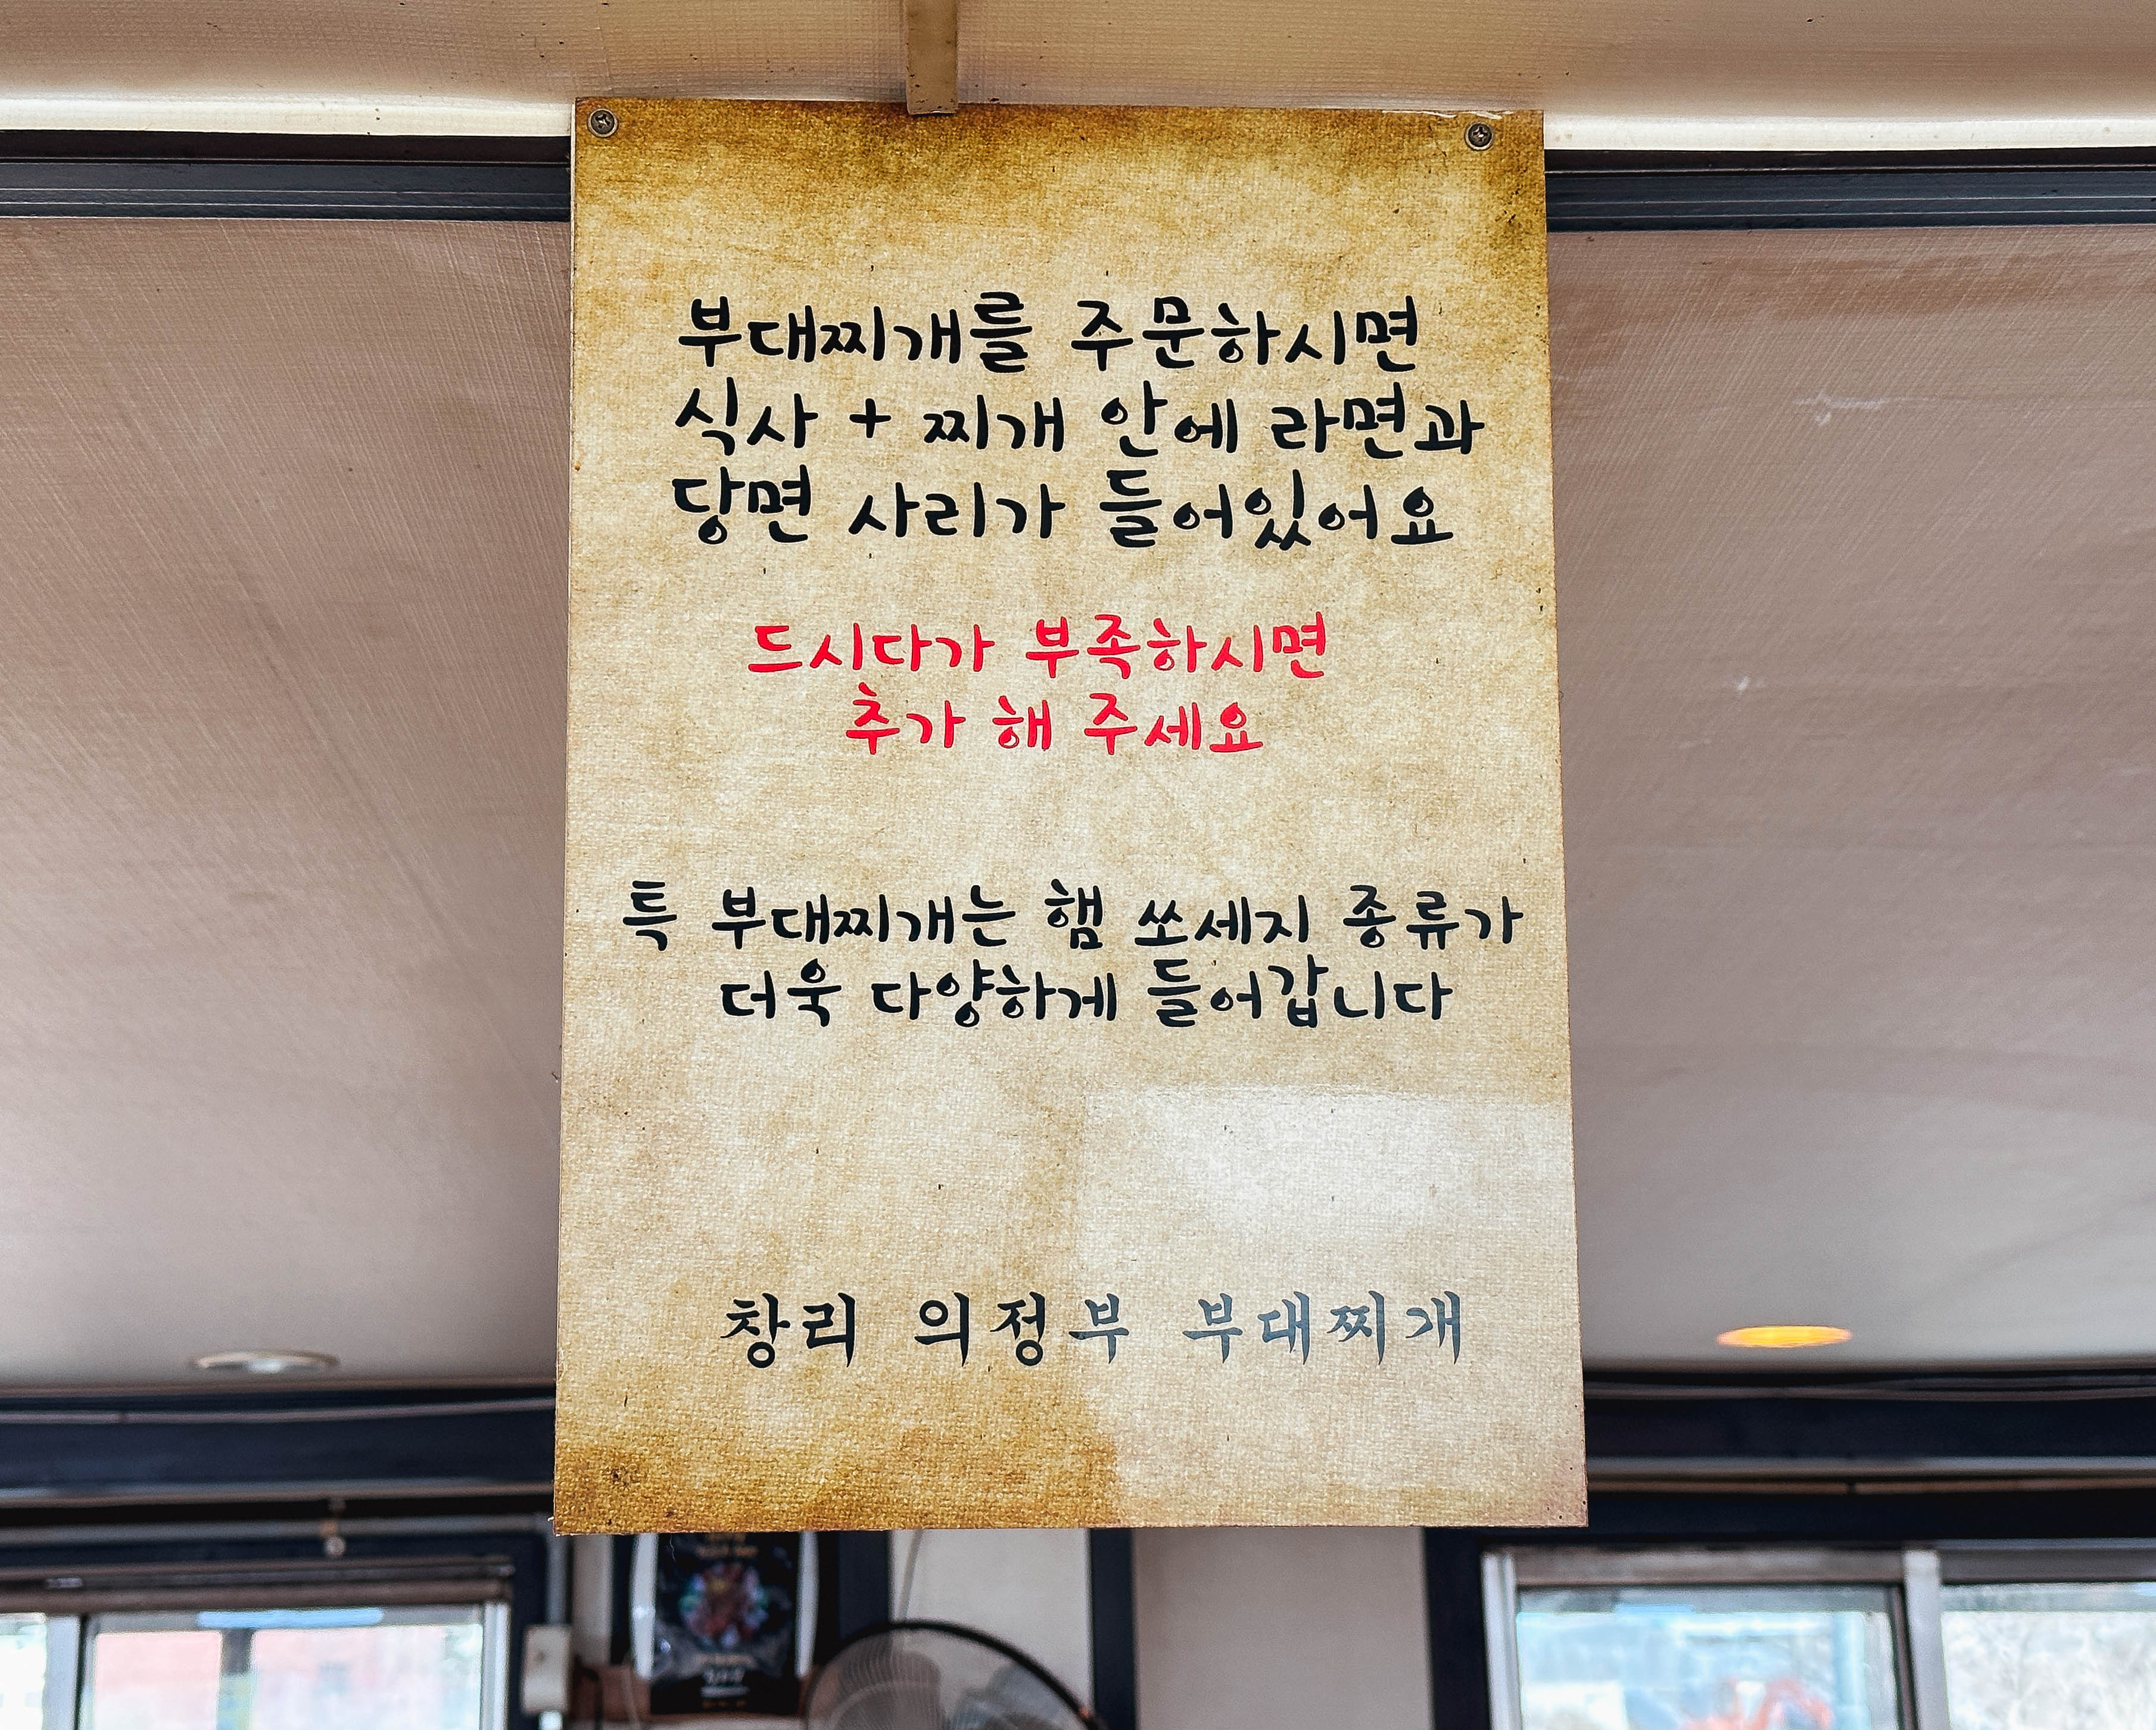 부대찌개를 주문하시면
식사 + 찌개 안에 라면과
당면 사리가 들어있어요
드시다가 부족하시면
추가 해 주세요
특 부대찌개는 햄 쏘세지 종류가
더욱 다양하게 들어갑니다
창리 의정부 부대찌개